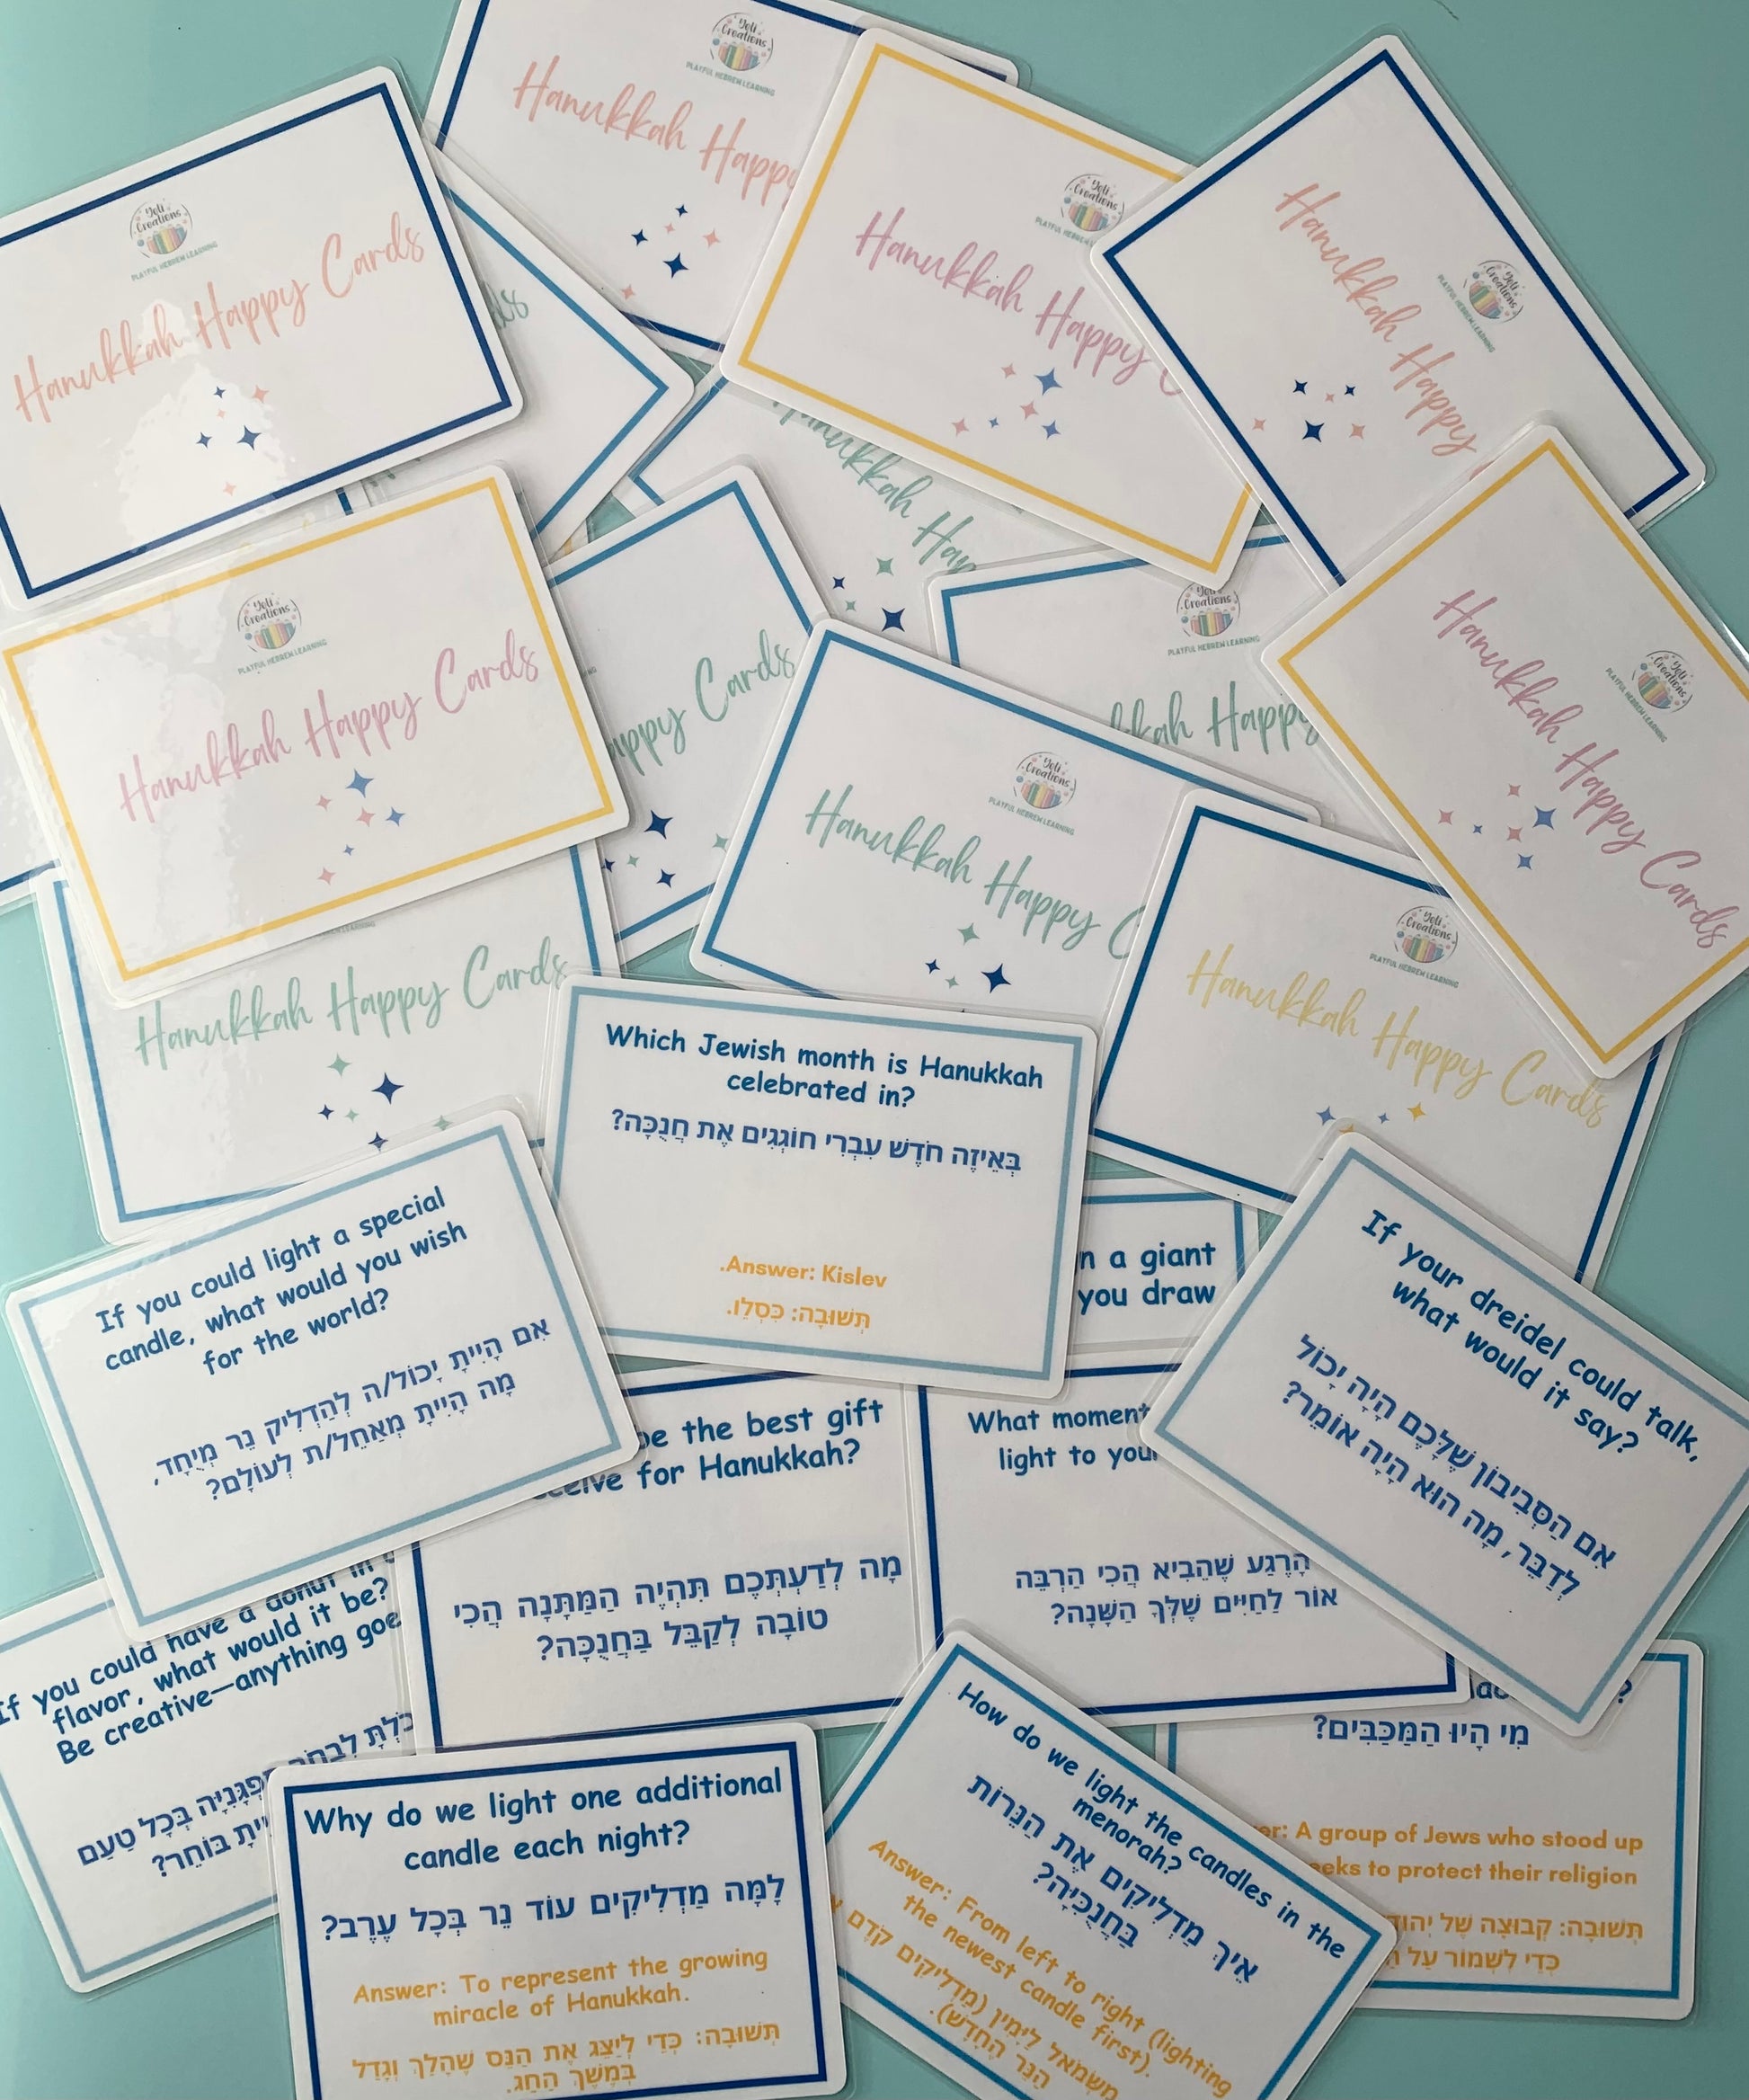 Yoli
Creations
PLAYFUL HEBREW LEARNING
Hanukkah Happy
Yoli
Creations
PLAYFUL HEBREW LEARNING
Hanukkah Happy Cards
Yoli
Creations
PLAYFUL HEBREW
Hanukkah Happy C
Yoli
Creations
PLAYFUL HEBREW LEARNING
Hanukkah Happy
Hanukkah Hap
Yoli
Creations
PLAYFUL HEBREW LEARNING
Hanukkah Happy Cards
Happy Cards
Yoli
Creations
PLAYFUL HEBREW LEARNING
kkah Happy
Yoli
Creations
PLAYFUL HEBREW LEARNING
Hanukkah Happy Cards
Yoli
Creations
PLAYFUL HEBREW LEARNING
Hanukkah Happy C
Yoli
Creations
PLAYFUL HEBREW LEARNING
Hanukkah Happy Cards
Hanukkah Happy Cards
Which Jewish month is Hanukkah
celebrated in?
בְּאֵיזֶה חֹדֶשׁ עִבְרִי חוֹגְגִים אֶת חֲנֻכָּה?
.Answer: Kislev
תְּשׁוּבָה: כִּסְלֵו.
If you could light a special
candle, what would you wish
for the world?
אִם הָיִיתָ יָכוֹל/ה לְהַדְלִיק נֵר מְיֻחָד,
מָה הָיִיתָ מְאַחֵל/ת לְעוֹלָם?
n a giant
you draw
If your dreidel could talk,
what would it say?
אִם הַסְּבִיבוֹן שֶׁלָּכֶם הָיָה יָכוֹל
לְדַבֵּר, מָה הוּא הָיָה אוֹמֵר?
be the best gift
ceive for Hanukkah?
מָה לְדַעְתְּכֶם תִּהְיֶה הַמַּתָּנָה הֲכִי
טוֹבָה לְקַבֵּל בַּחֲנֻכָּה?
What moment
light to your
הָרֶגַע שֶׁהֵבִיא הֲכִי הַרְבֵּה
אוֹר לַחַיִּים שֶׁלְּךָ הַשָּׁנָה?
If you could have a donut in
flavor, what would it be?
Be creative—anything goe
בְּכָל טַעַם
בּוֹחֵר?
Why do we light one additional
candle each night?
לָמָּה מַדְלִיקִים עוֹד נֵר בְּכָל עֶרֶב?
Answer: To represent the growing
miracle of Hanukkah.
תְּשׁוּבָה: כְּדֵי לְיַצֵּג אֶת הַנֵּס שֶׁהָלַךְ וְגָדַל
בְּמֶשֶׁךְ הַחַג.
How do we light the candles in the
menorah?
אֵיךְ מַדְלִיקִים אֶת הַנֵּרוֹת
בַּחֲנֻכִּיָּה?
Answer: From left to right (lighting
the newest candle first).
מִשְּׂמֹאל לְיָמִין (מַדְלִיקִים קֹדֶם
הַנֵּר הֶחָדָשׁ).
מִי הָיוּ הַמַּכַּבִּים?
er: A group of Jews who stood up
eeks to protect their religion
תְּשׁוּבָה: קְבוּצָה שֶׁל יְהוּד
כְּדֵי לִשְׁמוֹר עַל הַ